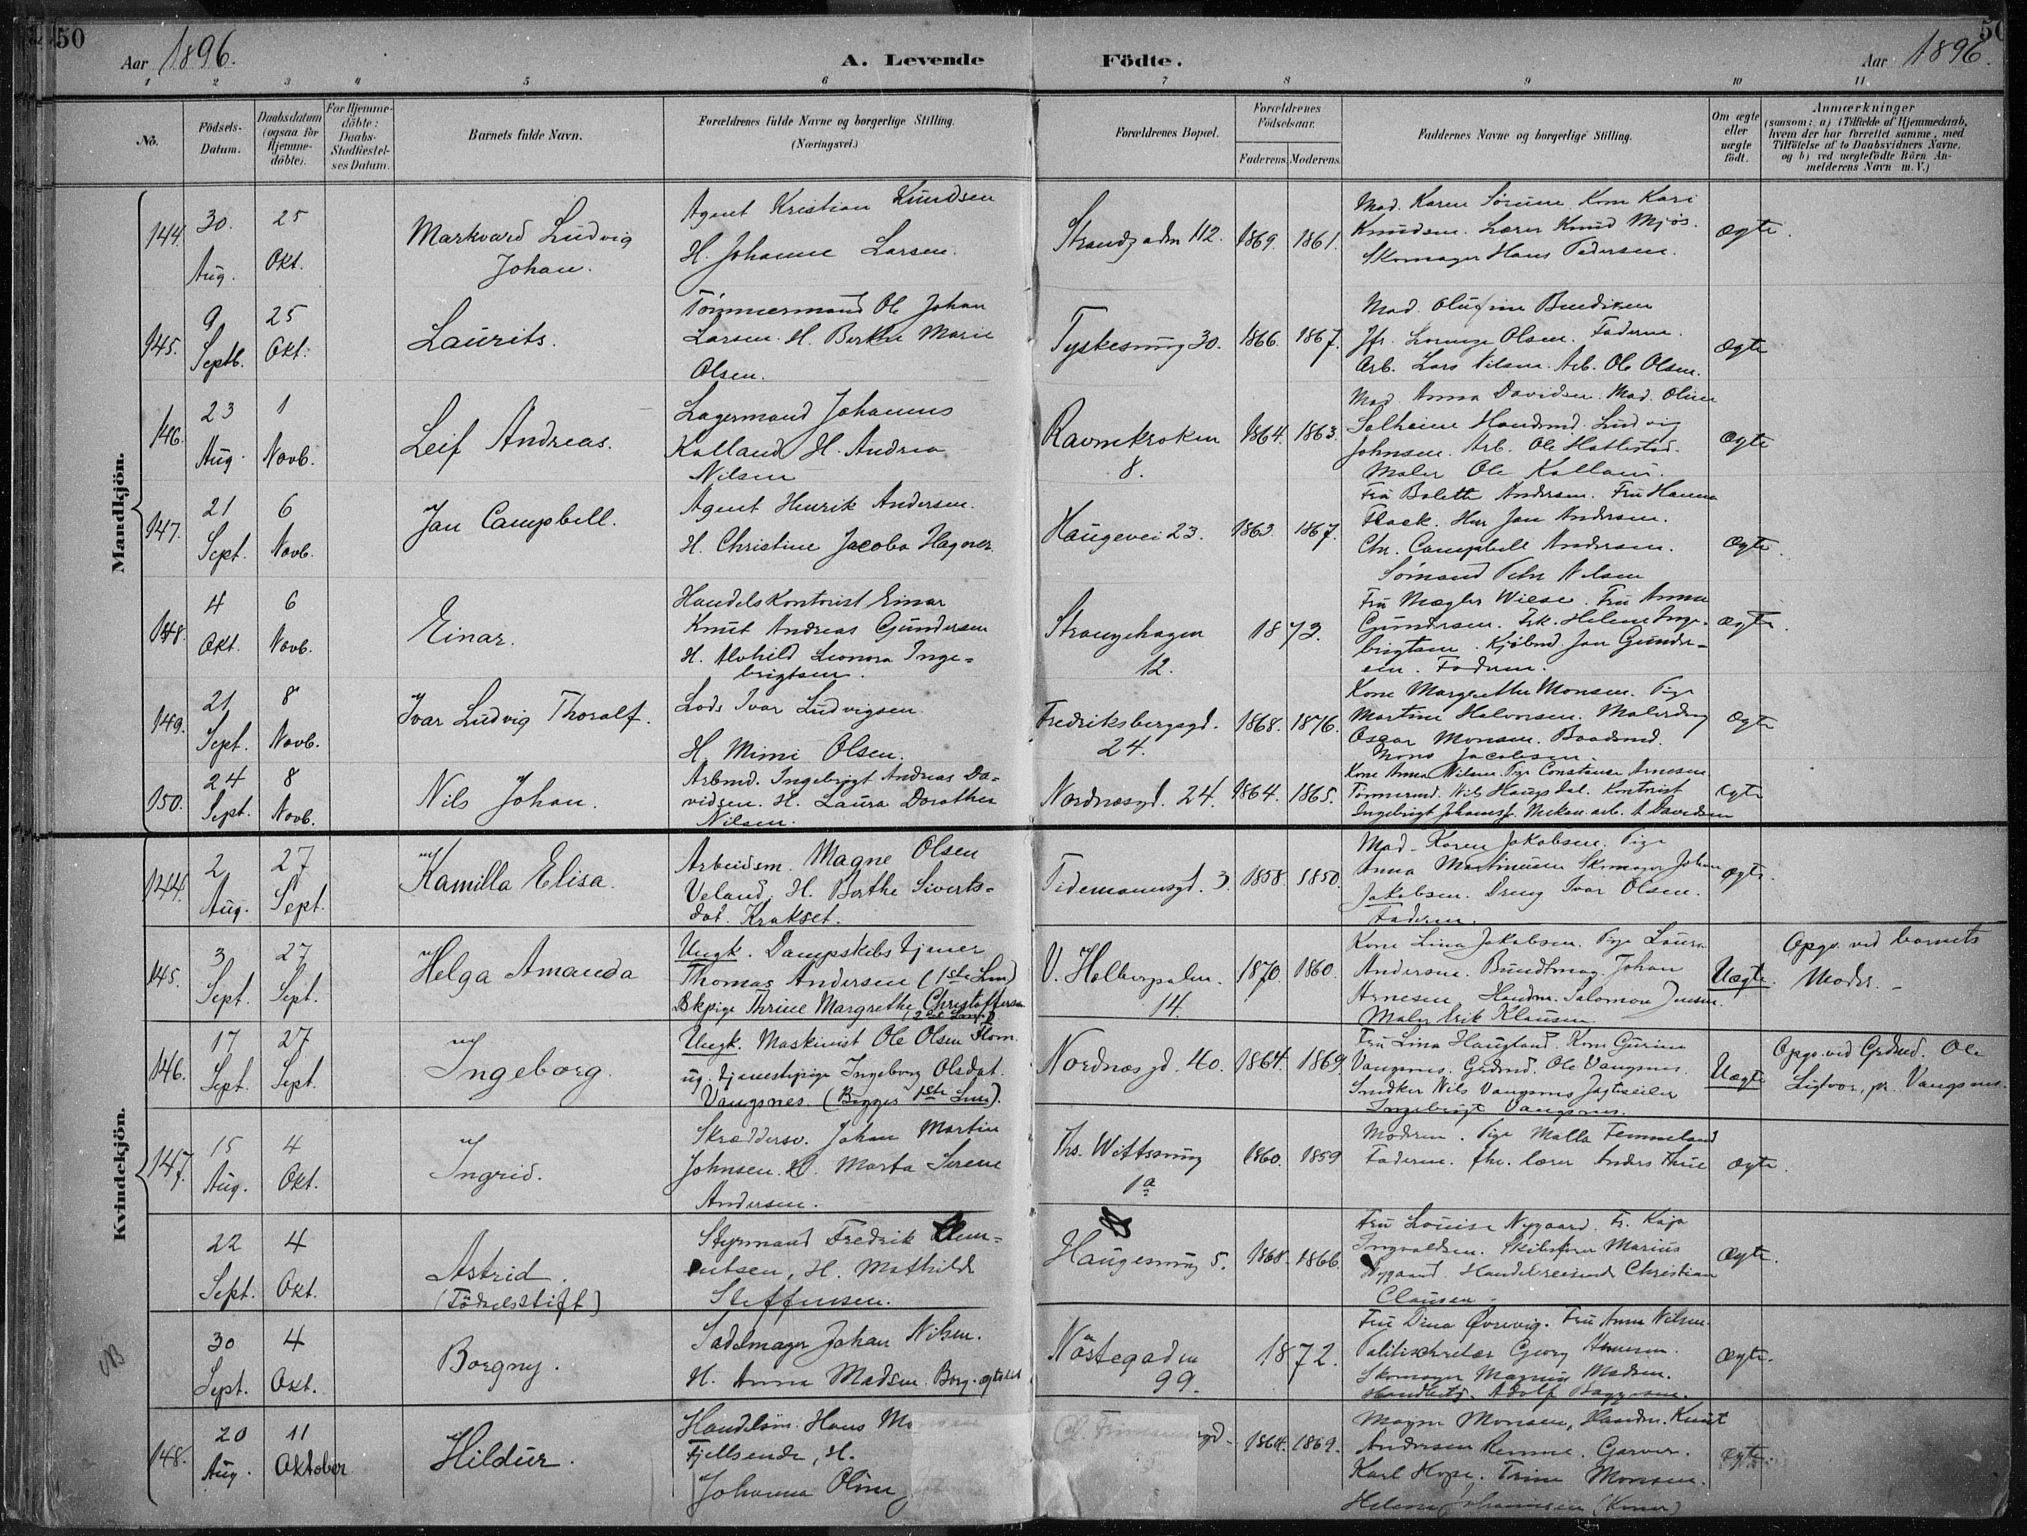 50
Aar 1896.
A. Levende Födte.
Aar 1896.
50
1 2 3 4 5 6 7 8 9 10 11
No.
Födsels-
Datum.
Daabsdatum
(ogsaa for
Hjemme-
döbte).
For Hjemme-
döbte:
Daabs-
Stadfæstel-
ses Datum.
Barnets fulde Navn.
Forældrenes fulde Navne og borgerlige Stilling.
(Næringsvei.)
Forældrenes Bopæl.
Forældrenes
Födselsaar.
Faderens. Moderens.
Faddernes Navne og borgerlige Stilling.
Om ægte
eller
uægte
födt.
Anmærkninger
(saasom: a) i Tilfælde af Hjemmedaab,
hvem der har forrettet samme, med
Tilföielse af to Daabsvidners Navne,
og b) ved uægtefödte Börn An-
melderens Navn m. V.)
Mandkjön.
144. 30. Aug. 25 Okt.
Markvard Ludvig
Johan.
Agent Kristian Knudsen
H. Johanne Larsen.
Strandgaden 112. 1869. 1861.
Mad. Karen Sörum. Kone Kari
Knudsen. Lærer Knud Mjös.
Skomager Hans Pedersen.
Ægte.
145. 9 Septb. 25 Okt.
Laurits.
Tömmermand Ole Johan
Larsen. H. Berthe Marie
Olsen.
Tyskesmug 30. 1866. 1867.
Jfr. Olsen. Faderen.
Arb. Lars Nilsen. Arb. Ole Olsen.
Ægte
146. 23 Aug. 1 Novb.
Leif Andreas.
Lagermand Johannes
Kalland H. Andrea
Nilsen
Ravnekroken
8.
1864. 1863.
Mad. Anna Davidsen. Mad. Oline
Solheim Handmd. Ludvig
Johnsen. Arb. Ole Hatlestad.
Maler Ole Kalland.
Ægte
147. 21 Sept. 6 Novb.
Jan Campbell.
Agent Henrik Andersen.
H. Christine Jacoba Hagner.
Haugevei 23. 1863. 1867.
Fru Bolette Andersen. Fru Hanna
Herr Jan Andersen.
Chr. Campbell Andersen.
Sömand Peter Nilsen
Ægte.
148. 4 Okt. 6 Novb.
Einar.
Handelskontorist Einar
Knut Andreas Gundersen
H. Alvhild Leonora Inge-
brigtsen.
Strangehagen
12.
1872.
Fru Mægler Wiese. Fru Anna
Gundersen. Frk. Helene Inge-
brigtsen. Kjöbmd. Jan Gunder-
sen. Faderen.
Ægte.
149. 21 Sept. 8 Novb.
Ivar Ludvig Thoralf.
Lods Ivar Ludvigsen.
H. Mimi Olsen.
Fredriksbergsgd.
24.
1868. 1876.
Kone Margrethe Monsen. Pige
Martine Halvorsen. Malerdreng
Oscar Monsen. Baadsmd.
Mons Jacobsen.
Ægte
150. 24 Sept. 8 Novb.
Nils Johan.
Arbmd. Ingebrigt Andreas Da-
vidsen. H. Laura Dorothea
Nilsen.
Nordnæsgd. 24. 1864. 1865.
Kone Anna Nilsen. Pige Constance Arnesen
Tömmermd. Nils Haugsdal. Kontorist
Ingebrigt Mekan. arb. A. Davidsen
Ægte
Kvindekjön.
144. 2 Aug. 27 Sept.
Kamilla Elisa.
Arbeidsm. Magne Olsen
Veland. H. Berthe Siverts-
dat. Krakset.
Tidemannsgd. 3. 1858. 1850.
Mad. Karen Jakobsen. Pige
Anna Martinusen Skomager Johan
Jakobsen. Dreng Ivar Olsen.
Faderen.
Ægte.
145. 3 Sept. 27 Sept.
Helga Amanda
Ungk. Dampskibstjener
Thomas Andersen (1ste Lm)
Pige Thrine Margrethe Christoffersen
(2det Lm.)
V. Holbergsalm.
14.
1870. 1860.
Kone Lina Jakobsen. Pige Laura
Andersen. Bundtmag. Johan
Arnesen. Handm. Salomon Jensen.
Maler Erik Klausen.
Uægte.
Opgv. ved barnets
Moder. -
146. 17 Sept. 27 Sept.
Ingeborg.
Ungk. Maskinist Ole Olsen Flom.
ug. tjenestepige Ingeborg Olsdat.
Vangsnes. (Begges 1ste Lm).
Nordnæsgd. 40. 1864. 1869
Fru Lina Haugland. Kone Gurine
Vangsnes. Grdmd. Ole Vangsnes.
Snedker Nils Vangsnes Jagtseiler
Ingebrigt Vangsnes.
Uægte
Opgv. ved Grdmd. Ole
pr. Vangsnes.
147. 15 Aug. 4 Okt.
Ingrid.
Skræddersv. Johan Martin
Johnsen. H. Marta Serene
Andersen.
Ths. Wittssmug
1a
1860. 1859
Moderen. Pige Malla Femmeland
Faderen. fhv. lærer Anders Thue
Ægte.
22 Sept. 4 Okt.
Astrid.
(Födselsstift)
Styrmand Fredrik Clem-
entsen, H. Mathilde
Steffensen.
Haugesmug 5. 1868. 1866.
Fru Louise Nygaard. Fr. Kaja
Ingvaldsen. Skibsförer Marius
Nygaard. Handelsreisende Christian
Clausen.
Ægte.
NB
30 Sept. 4 Okt.
Borgny.
Sadelmager Johan Nilsen.
H. Anna Madsen. Borg. ægteskab
Nöstegaden
99.
1872.
Fru Dina Övrevig. Fru Anna Nilsen.
Georg
Skomager Magnus Madsen.
Adolf Baggesen.
Ægte.
148. 20 Aug. 11 Oktober
Hildur.
Handelsm. Hans Mo
Fjellsende, H.
Johanna Oline
1864. 1869.
Magne Monsen, Handm. Knut
Andersen Remme. Garver.
Karl Hope. Trine Monsen.
Helene Johannesen (Koner)
Ægte.